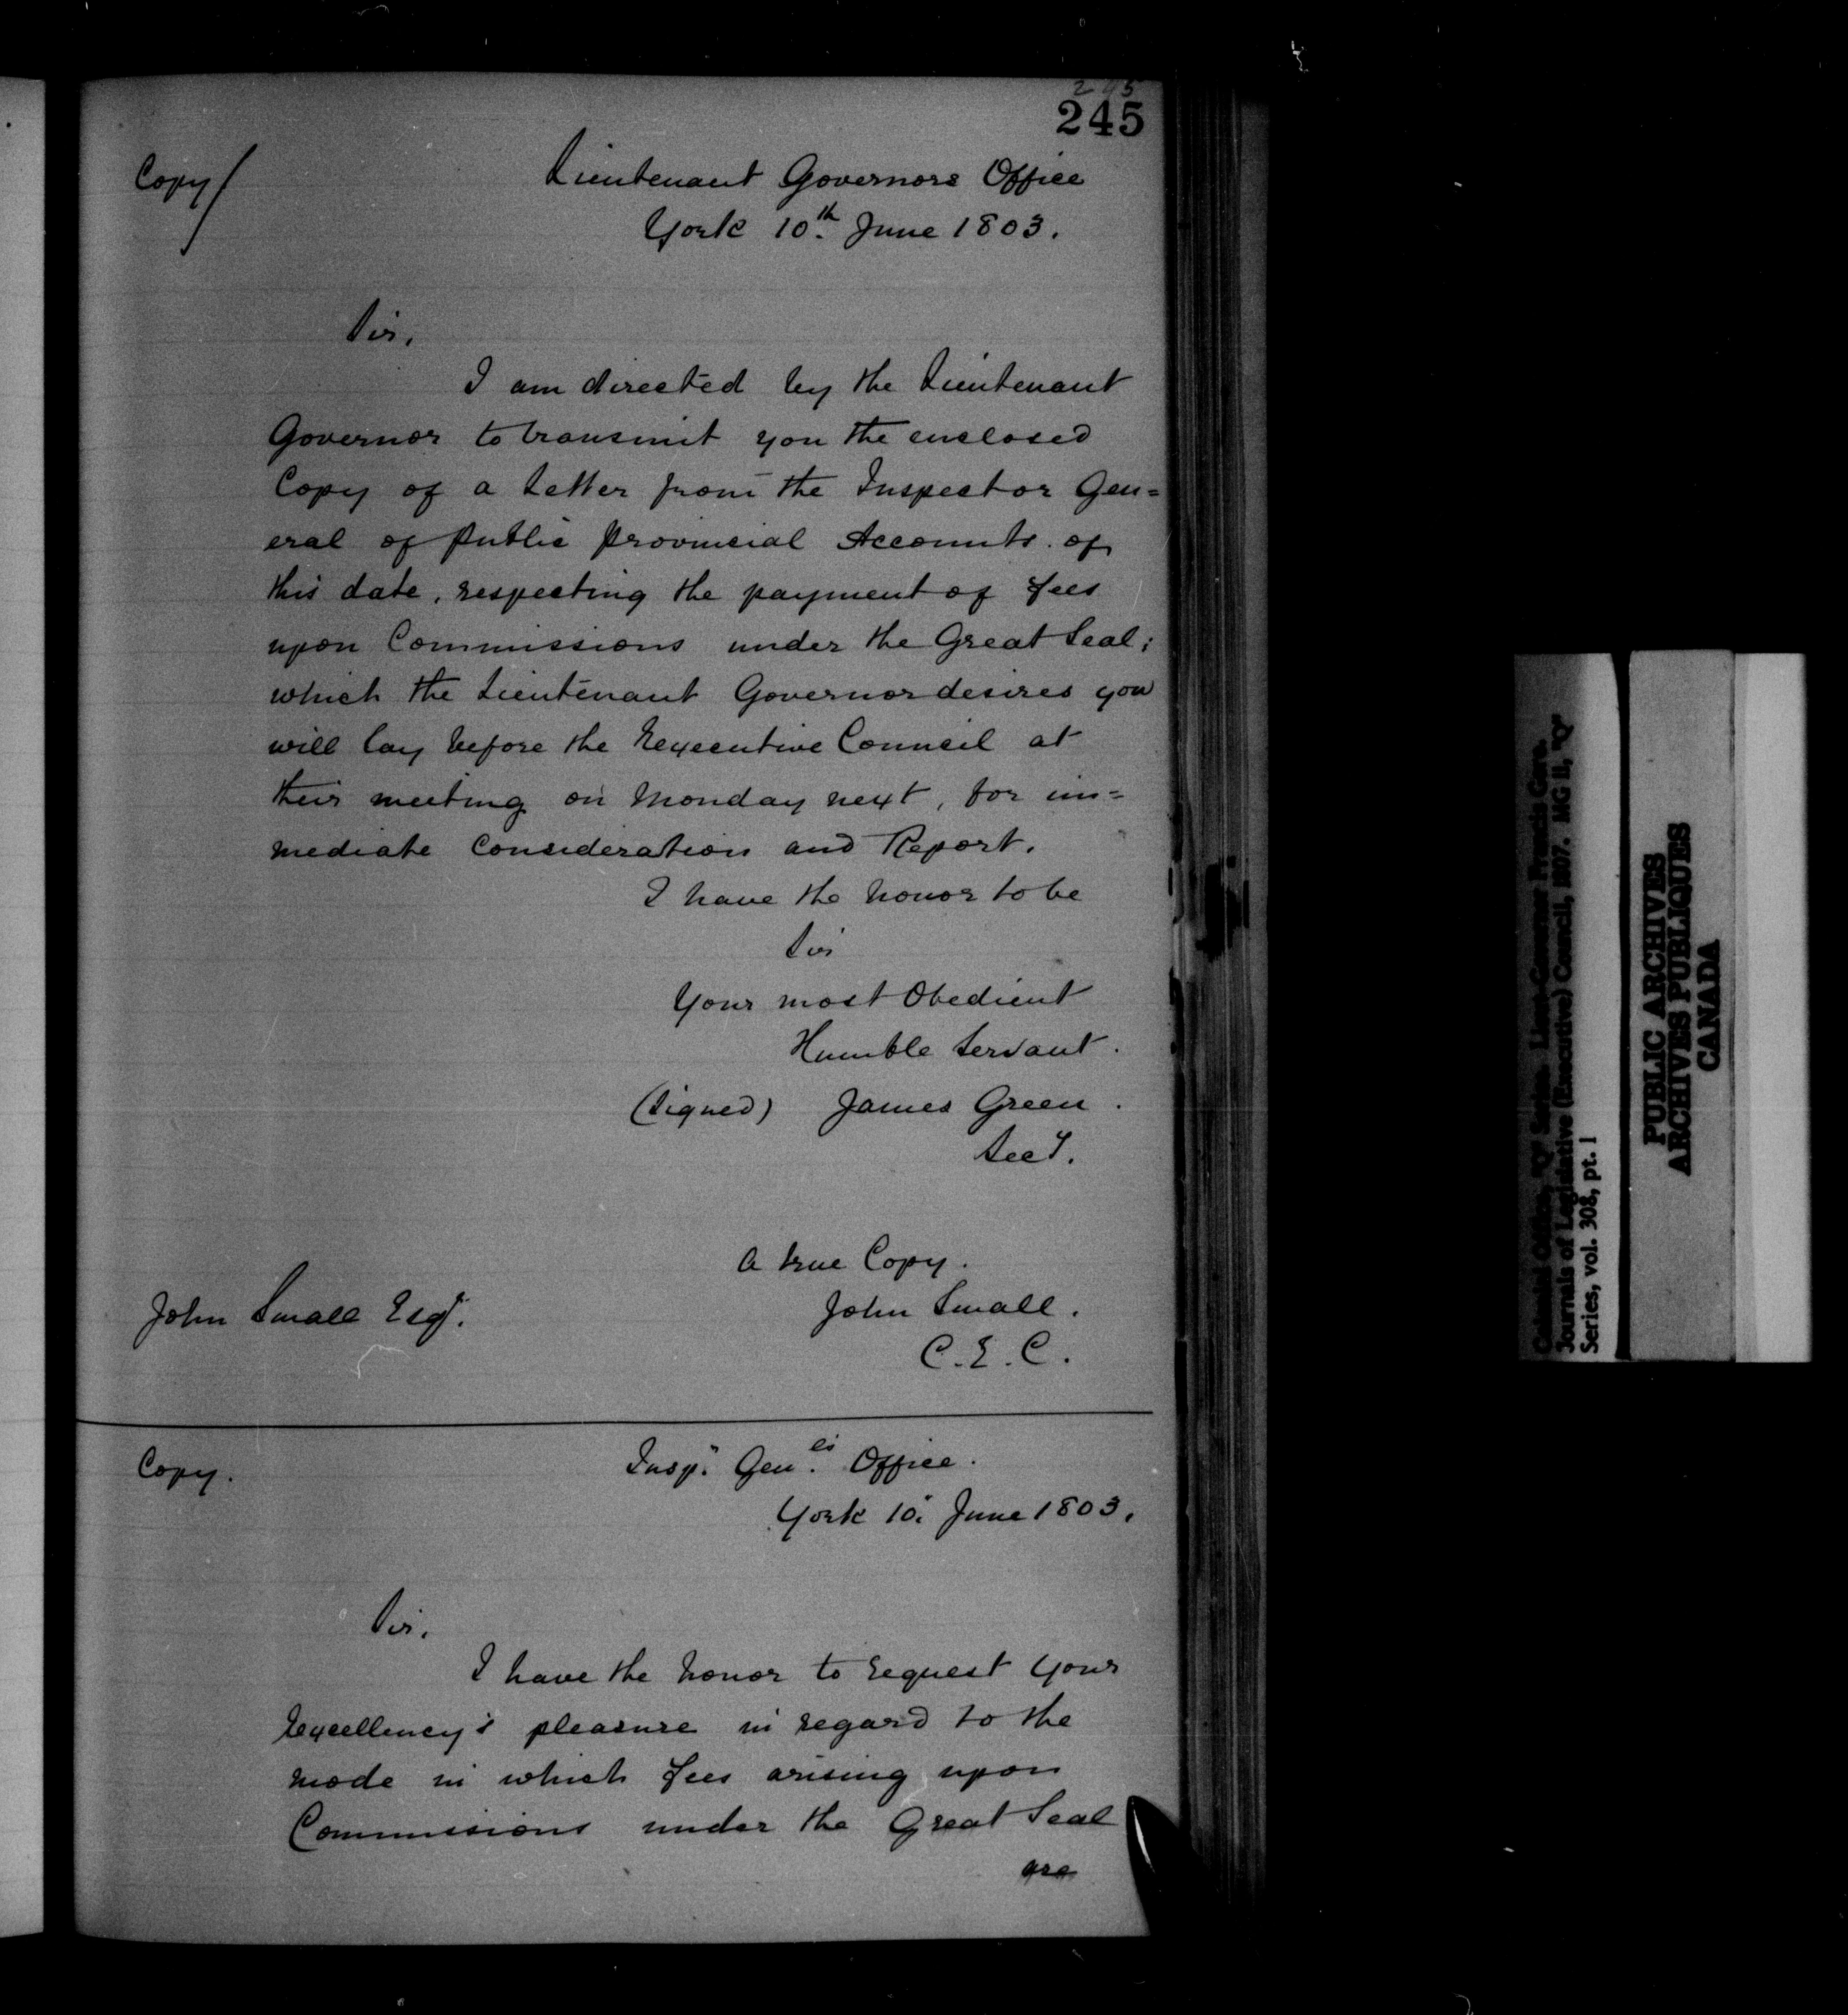 245
245
Copy/
Lieutenant Governors Office
York 10th June 1803.
Sir,
I am directed by the Lieutenant
Governor to transmit you the enclosed
Copy of a Letter from the Inspector Gen=
eral of Public Provincial Accounts of
this date, respecting the payment of Fees
upon Commissions under the Great Seal;
which the Lieutenant Governor desires you
will lay before the Executive Council at
their meeting on Monday next, for im=
mediate Consideration and Report.
I have the honor to be
Sir
Your most Obedient
Humble Servant.
(Signed) James Green.
Secy.
A true Copy.
John Small.
C.E.C.
John Small Esqr.
Copy.
Insp. Genls Office.
York 10. June 1803.
Sir,
I have the honor to request Your
Excellency's pleasure in regard to the
mode in which Fees arising upon
Commissions under the Great Seal
are
Colonial Office, "Q" Series. Lieut-Governor Francis Gore.
Journals of Legislative (Executive) Council, 1807. MG 11, "Q"
Series, vol. 308, pt. 1
PUBLIC ARCHIVES
ARCHIVES PUBLIQUES
CANADA